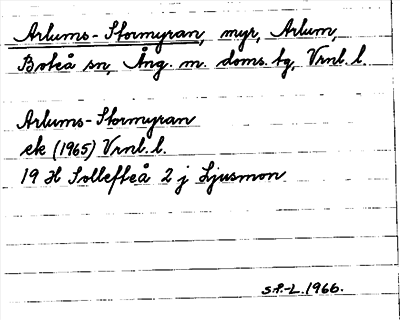 Arlums-Stormyran, myr, Arlum,
Boteå sn, Ång. m. doms. tg, Vrnl. l.
Arlums-Stormyran
ek (1965) Vrnl. l.
19 H Sollefteå 2 j Ljusmon.
S.P.-L. 1966.